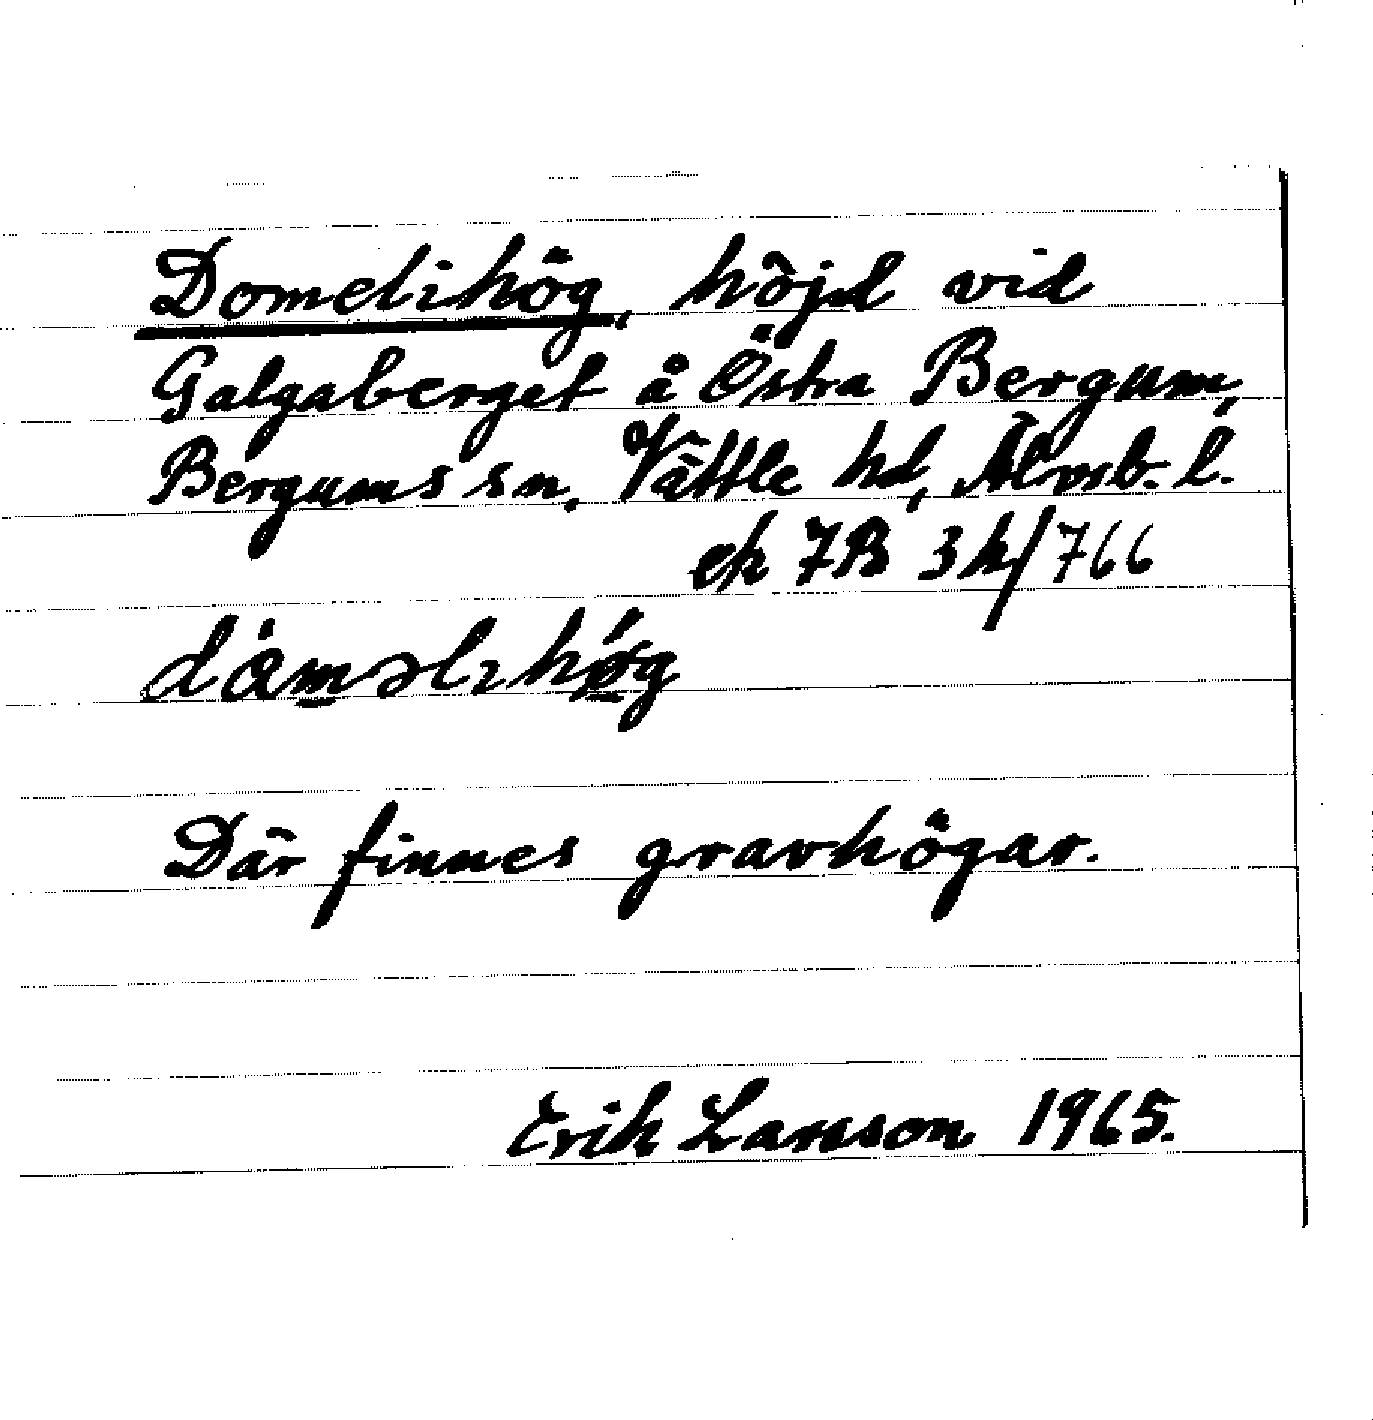 Domelihög, höjd vid
Galgaberget å Östra Bergum,
Bergums sn, Vättle hd, Älvsb. l.
ek 7B 3h/766
dȧməlıhǿg
Där finnes gravhögar.
Erik Larsson 1965.